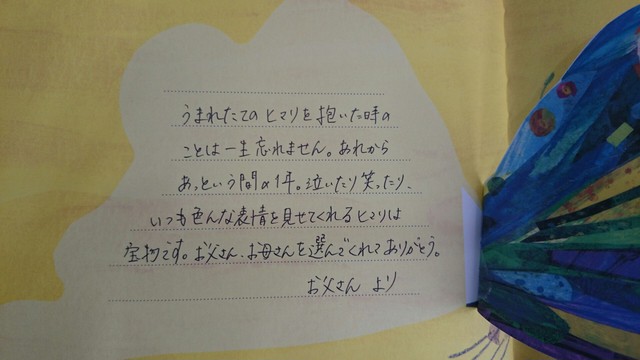 うまれたての ヒマリを抱いた時の
ことは一生忘れません。あれから
あっという間の1年。泣いたり笑ったり、
いつも色んな表情を見せてくれるヒマリは
宝物です。お父さん、お母さんを選んでくれてありがとう。
お父さん より